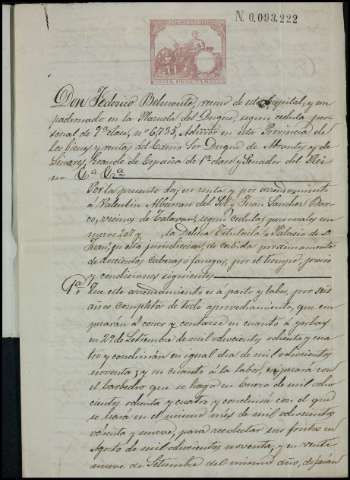 N. 0,093,222
Don Federico Belmonte, vecino de esta Capital, y em
padronado en la Plazuela del Duque, según cedula per
sonal de 7ª clase, nº 6,735, Admor en esta Provincia de
los bienes y rentas del Excmo Sor Duque de Montes y de
Linares, Grande de España de 1ª clase y Senador del Rei
no
Por la presente doy en renta y por arrendamiento
a Valentin y Juan Sanchez
vecinos de Talavan, según cedulas personales
la Dehesa titulada Palacio de
jurisdiccion, de cabida proximamente
de doscientas cabezas o fanegas, por el tiempo, precio
y condiciones siguientes
1ª Que este arrendamiento es a pasto y labor, por seis
años completos de todo aprovechamiento, que em
pezarán a correr y contarse en cuanto a yerbas
en 29 de Setiembre de mil ochocientos ochenta y cua
tro y concluirán en igual dia de mil ochocientos
noventa; y en cuanto a la labor, empezará con
el barbecho que se haga en Enero de mil ocho
cientos ochenta y cuatro y concluirá con el que
se hará en el mismo mes de mil ochocientos
ochenta y nueve, para recolectar sus frutos en
Agosto de mil ochocientos noventa, y en veinte
nueve de Setiembre del mismo año, dejarán